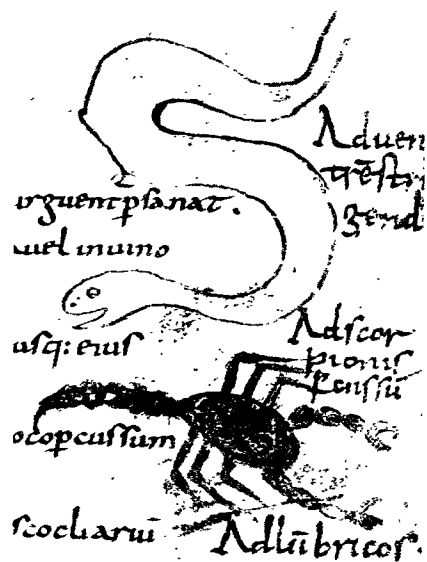 Aduen
trestri
urguentpsanat.
uel inuino
usq: eius
Adscor
pionis
pcussū
ocopcussum
scocliarui
Adlūbricos.